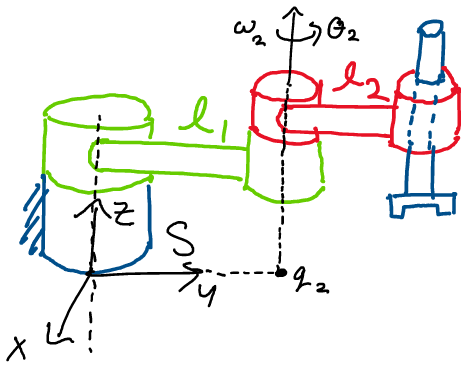 ω₂ θ₂
l₁ l₂
z
S
y q₂
x